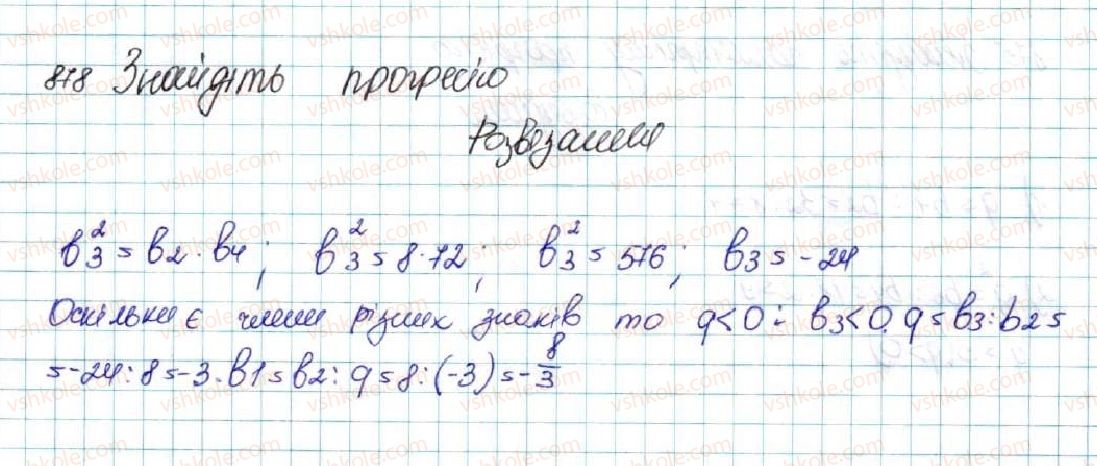 878 Знайдіть прогресію
Розвязання
b₃² = b₂ · b₄; b₃² = 8·72; b₃² = 576; b₃ = -24
Оскільки є члени різних знаків то q<0 і b₃<0. q = b₃:b₂ =
= -24:8 = -3. b1 = b₂: q = 8:(-3) = -8/3